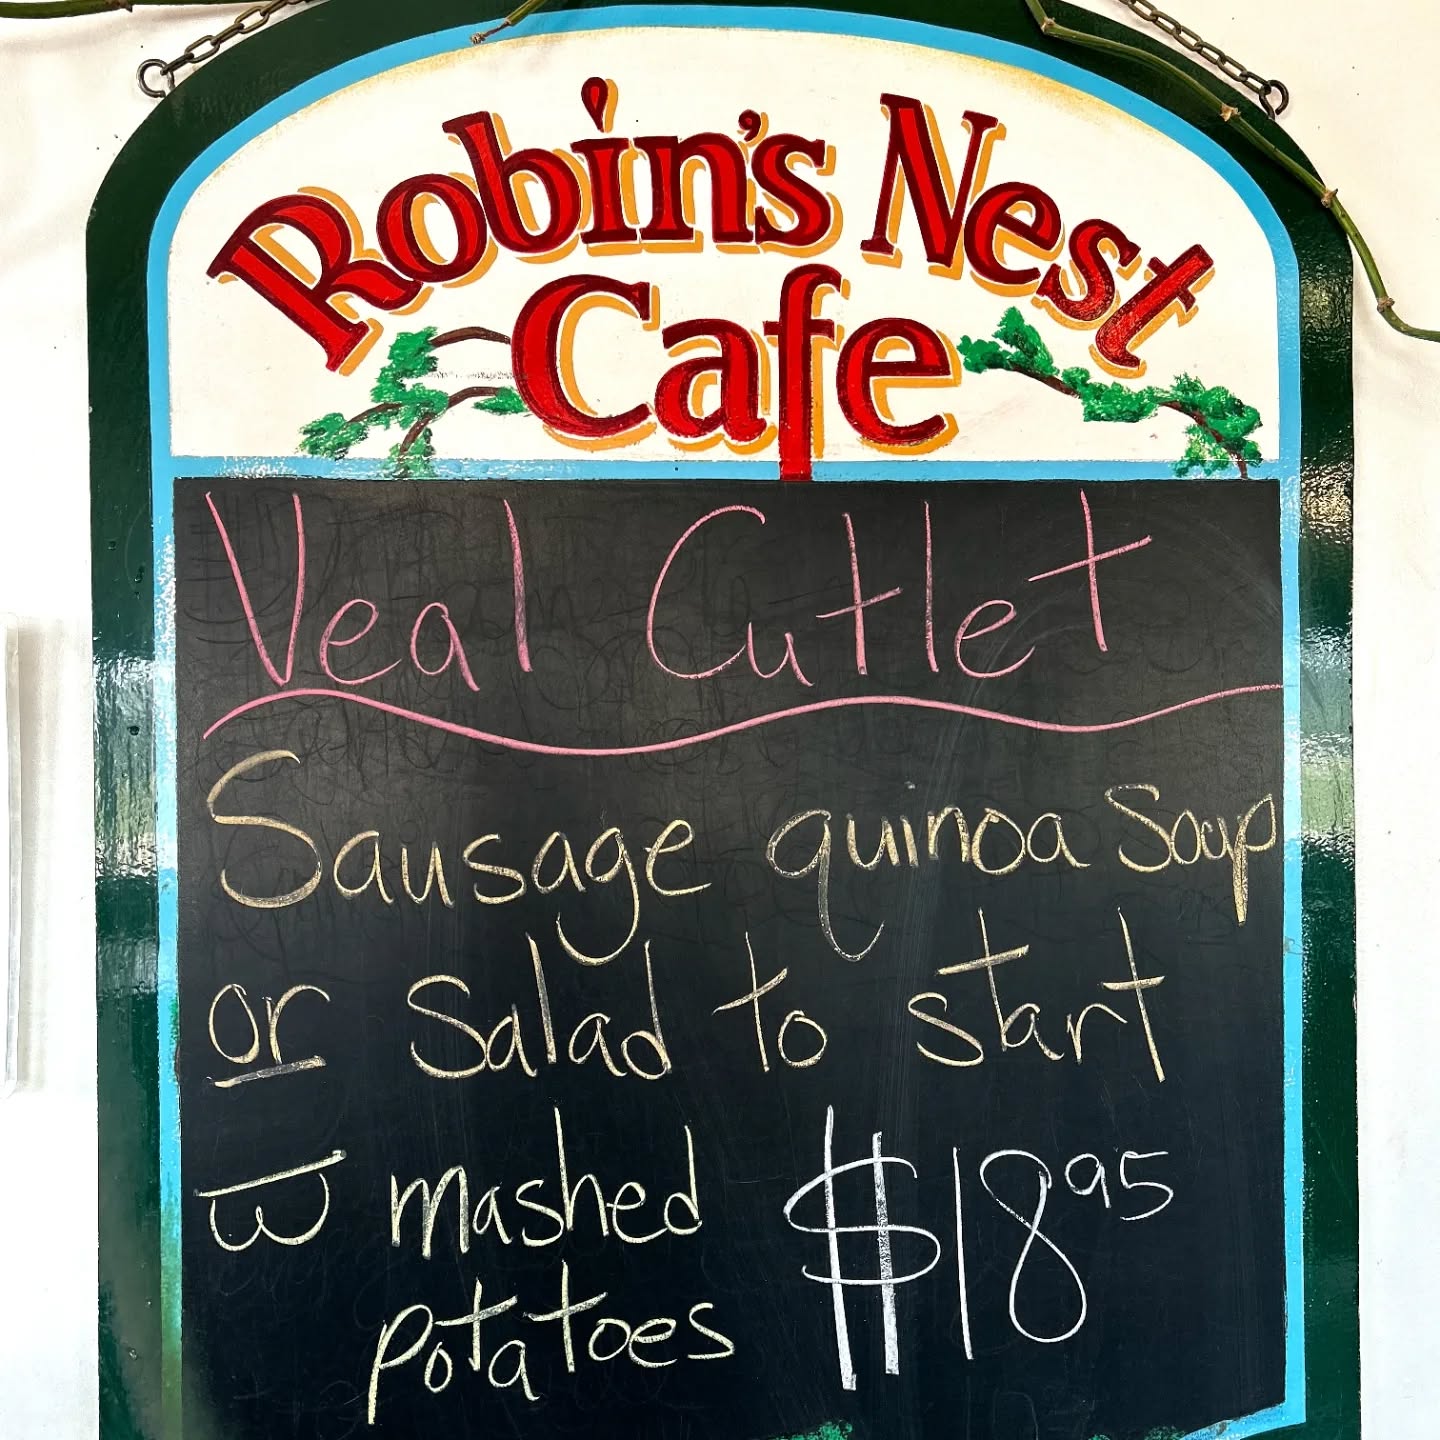 Robin's Nest
Cafe
Veal Cutlet
Sausage quinoa Soup
or Salad to start
w̅ mashed
potatoes $18.95